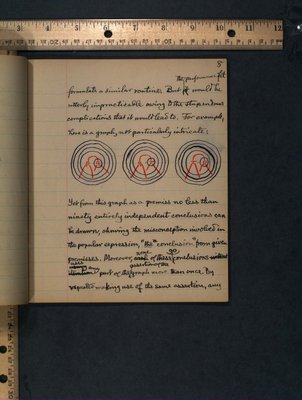 8
the performance felt
formulate a similar routine. But it would be
utterly impracticable owing to the stupendous
complications that it would lead to. For example,
here is a graph, not particularly intricate:
Yet from this graph as a premiss no less than
ninety entirely independent conclusions can
be drawn, showing the misconception involved in
the popular expression, "the conclusion" from given
premisses. Moreover, each of these conclusions
part of the graph more than once. By
repeated making use of the same assertion, any